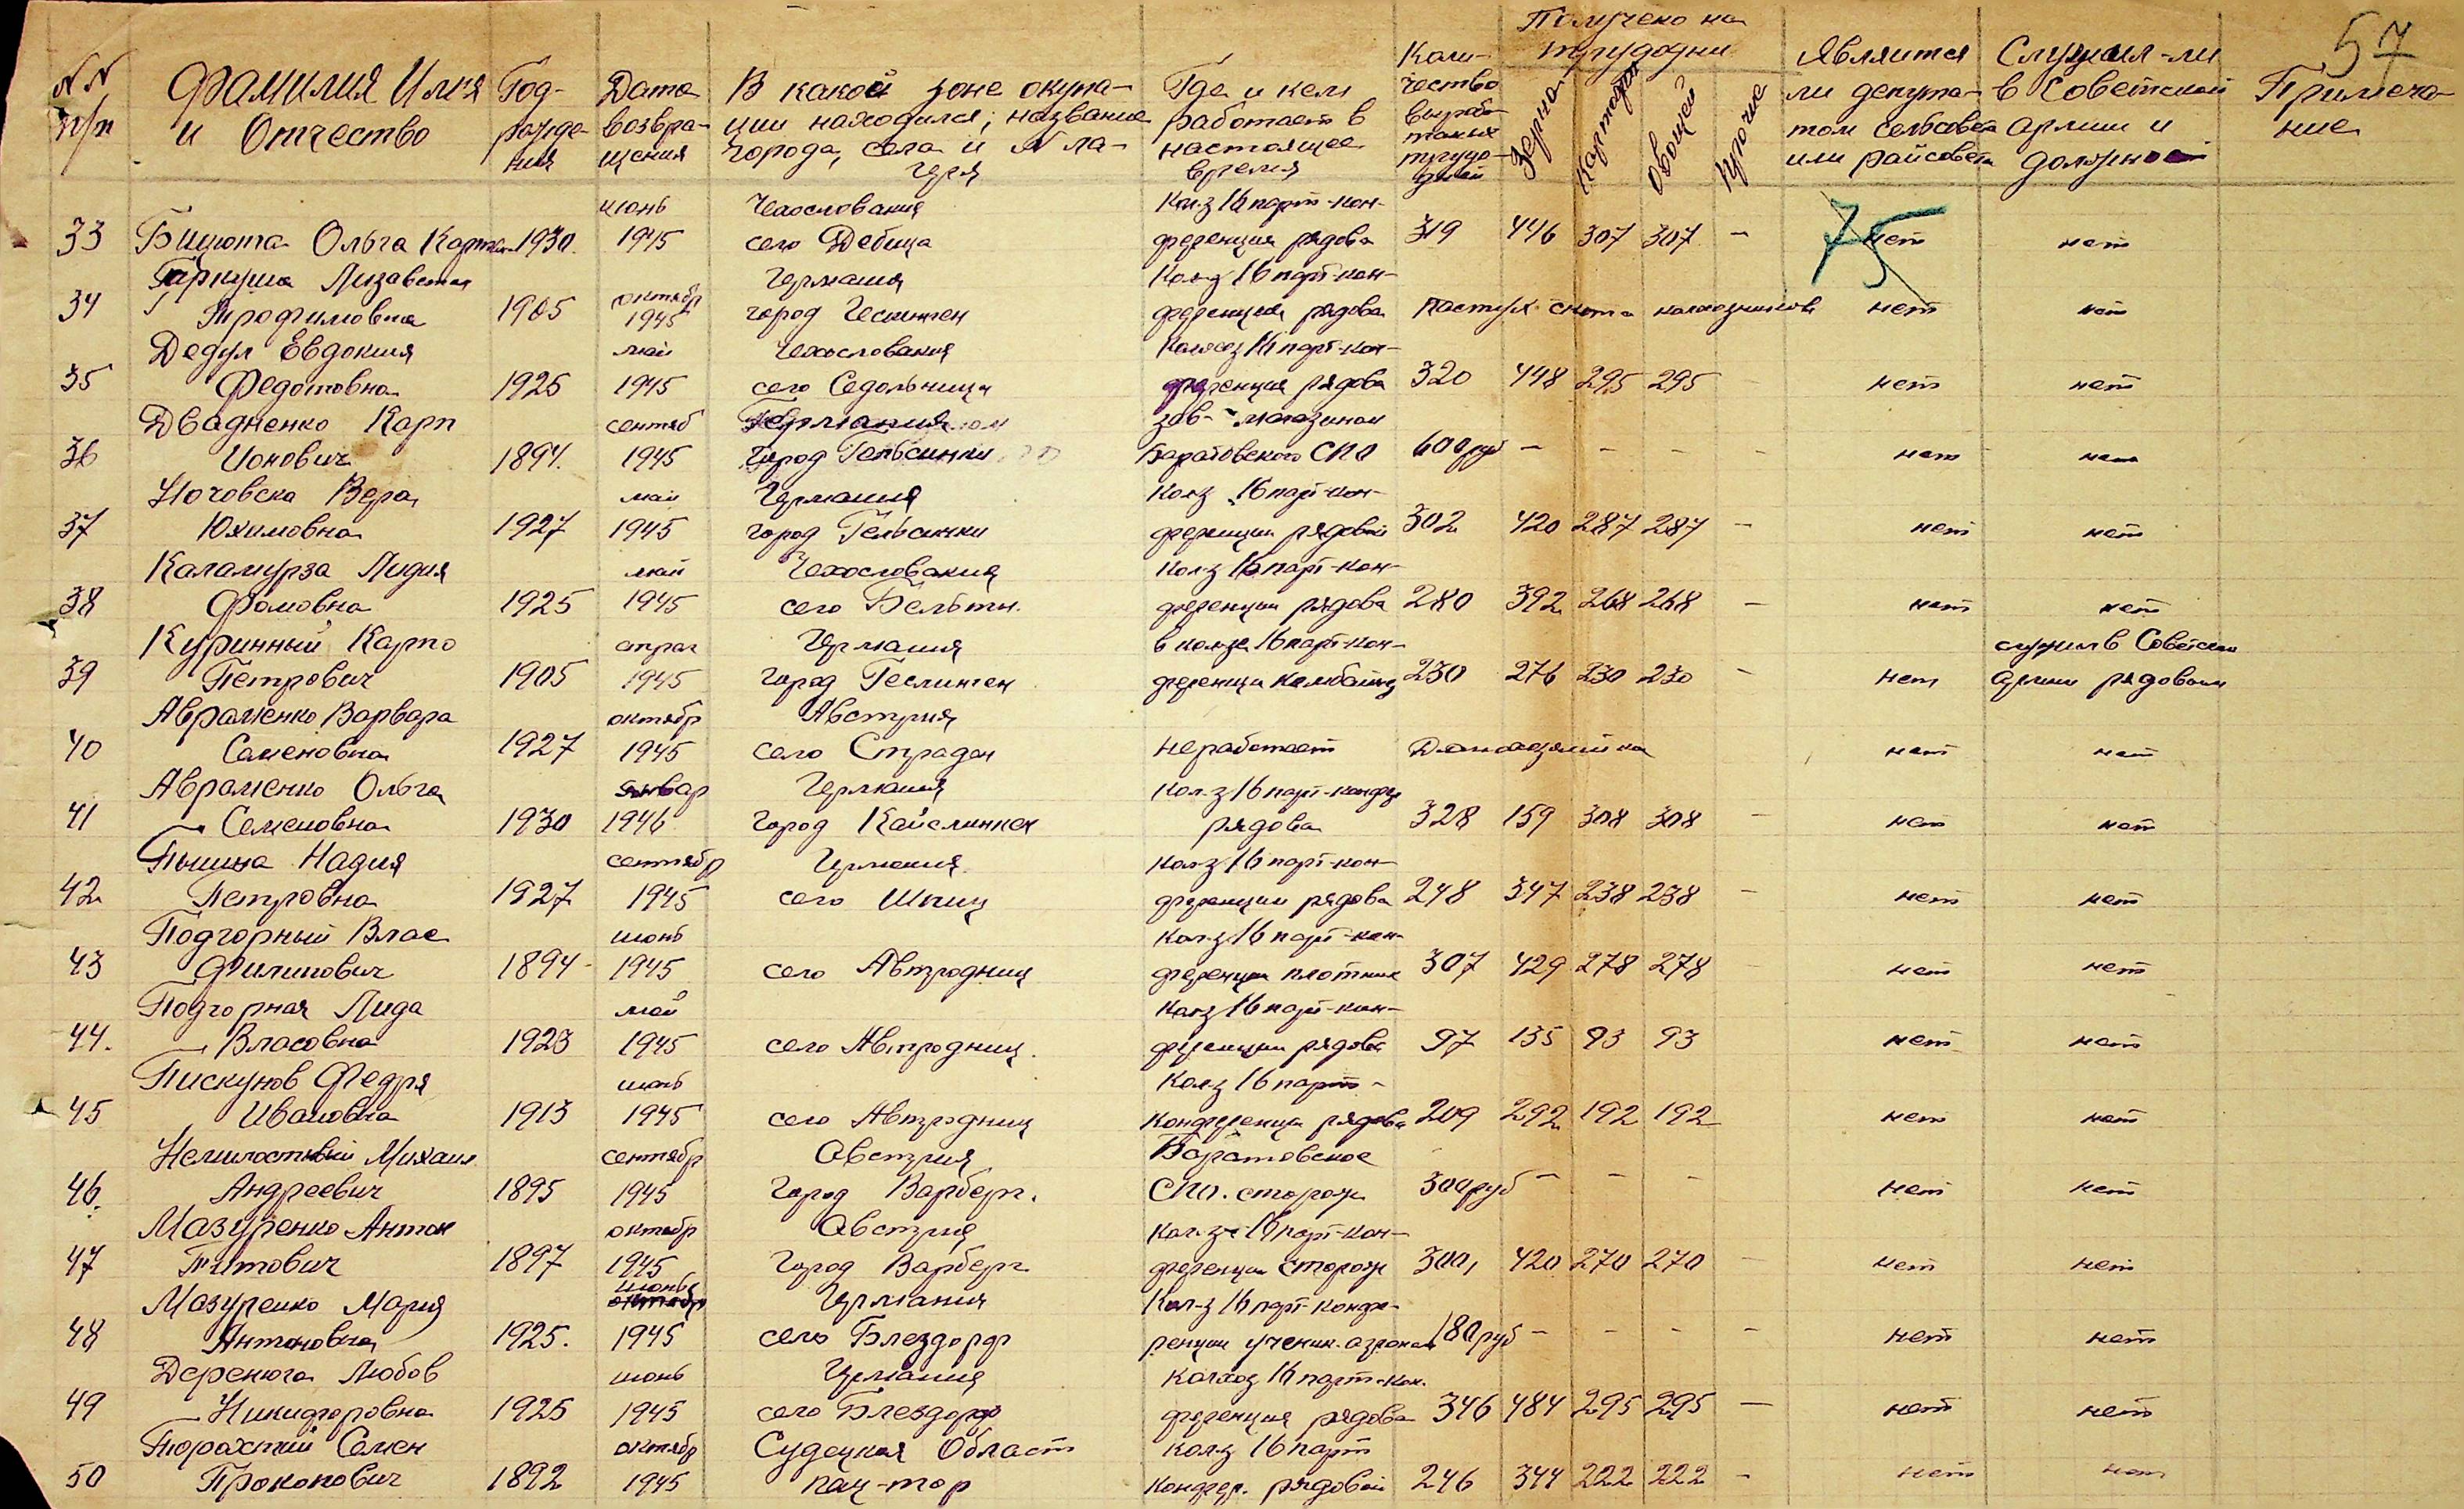 57
№№ п/п
Фамилия Имя и Отчество
Год рождения
Дата возвращения
В какой зоне окупации находился, название города, села и № лагеря
Где и кем работает в настоящее время
Количество выработаных трудодней
Получено на трудодни
Зерна
Картофеля
Овощей
прочие
Является ли депутатом сельсовета или райсовета
Служил-ли в Советской Армии и должност
Примечание
75
июнь Чехословакия Кол-з 16 парт-кон-
33 Бицюта Ольга Карп 1930. 1945 село Дебица ференция рядова 319 446 307 307 – нет нет
Гаркуша Лизавета Германия Кол-з 16 парт-кон-
34 Трофимовна 1905 октябр 1945 город Геслинген ференция рядова пастух скота колхозников нет нет
Дедул Евдокия май Чехословакия Колхоз 16 парт-кон-
35 Федотовна 1925 1945 село Седольница ференция рядова 320 448 295 295 – нет нет
Двадненко Карп сентяб Германия зав-магазином
36 Ионович 1894. 1945 город Гельсинки Баратовского СПО 600 руб – – – – нет нет
Ночовска Вера май Германия Кол-з 16 парт-кон-
37 Юхимовна 1927 1945 город Гельсинки ференции рядовой 302 420 287 287 – нет нет
Каламурза Лидия май Чехословакия Кол-з 16 парт-кон-
38 Фомовна 1925 1945 село Бельтн. ференции рядова 280 392 268 268 – нет нет
Куринный Карпо Германия в кол-зе 16 парт-кон- служил в Советской
39 Петрович 1905 1945 город Геслинген ференци комбайнер 230 276 230 230 – нет армии рядовым
Авраменко Варвара октябр Австрия
40 Семеновна 1927 1945 село Страден неработает Домохозяйка нет нет
Авраменко Ольга январ Германия Кол-з 16 парт-конфе
41 Семеновна 1930 1946 город Кайслинген рядова 328 159 308 308 – нет нет
Надия сентябр Германия Кол-з 16 парт-кон-
42 Петровна 1927 1945 село Шпиц ференции рядова 248 347 238 238 – нет нет
Подгорный Влас июнь Кол-з 16 парт-кон-
43 Филипович 1894 – 1945 село Автродниц ференции плотник 307 429 278 278 – нет нет
Подгорная Лида май Кол-з 16 парт-кон-
44. Власовна 1923 1945 село Автродниц. ференции рядова 97 135 93 93 – нет нет
Пискунов Федря июнь Кол-з 16 парт-
45 Ивановна 1913 1945 село Автродниц конференци рядова 209 292 192 192 – нет нет
Немилостивий Михаил сентябр Австрия Баратовское
46. Андреевич 1895 1945 Город Варберг. СПО. сторож 300 руб – – – – нет нет
Мазуренко Антон октябр Австрия Кол-з 16 парт-кон-
47 Титович 1897 1945 Город Варберг ференции сторож 300, 420 270 270 – нет нет
Мазуренко Мария июнь Германия Кол-з 16 парт-конфе-
48 Антоновна 1925. 1945 село Блездорф ренции ученик. агроном 180 руб – – – – нет нет
Деренюга Любов июнь Германия колхоз 16 парт-кон.
49 Никифоровна 1925 1945 село Блездорф ференция рядова 346 484 295 295 – нет нет
Семен октябр Судецкая Област кол-з 16 парт
50 Прокопович 1892 1945 пац-тор конфер. рядовой 246 344 222 222 – нет нет